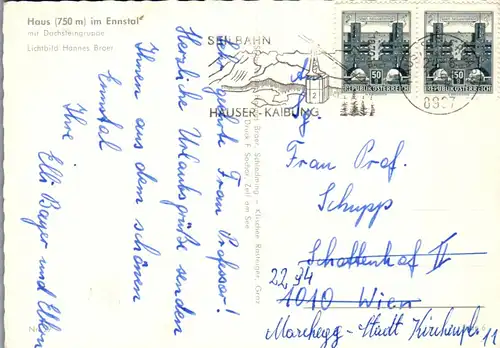 Haus (750 m) im Ennstal
mit Dachsteingruppe
Lichtbild Hannes Broer
Sehr geehrte Frau Professor!
Herzliche Urlaubsgrüße senden
Ihnen aus dem schönen
Ennstal
Ihre Elli Bayer und Eltern
SEILBAHN
HAUSER-KAIBLING
50
REPUBLIK ÖSTERREICH
50
REPUBLIK ÖSTERREICH
2
8967
Broer, Schladming – Klischee Rastaiger, Graz
Druck F. Sochor, Zell am See
An
Frau Prof.
Schupp
Schottenhof II
2294
1010 Wien
Marchegg-Stadt Kirchenpl. 11